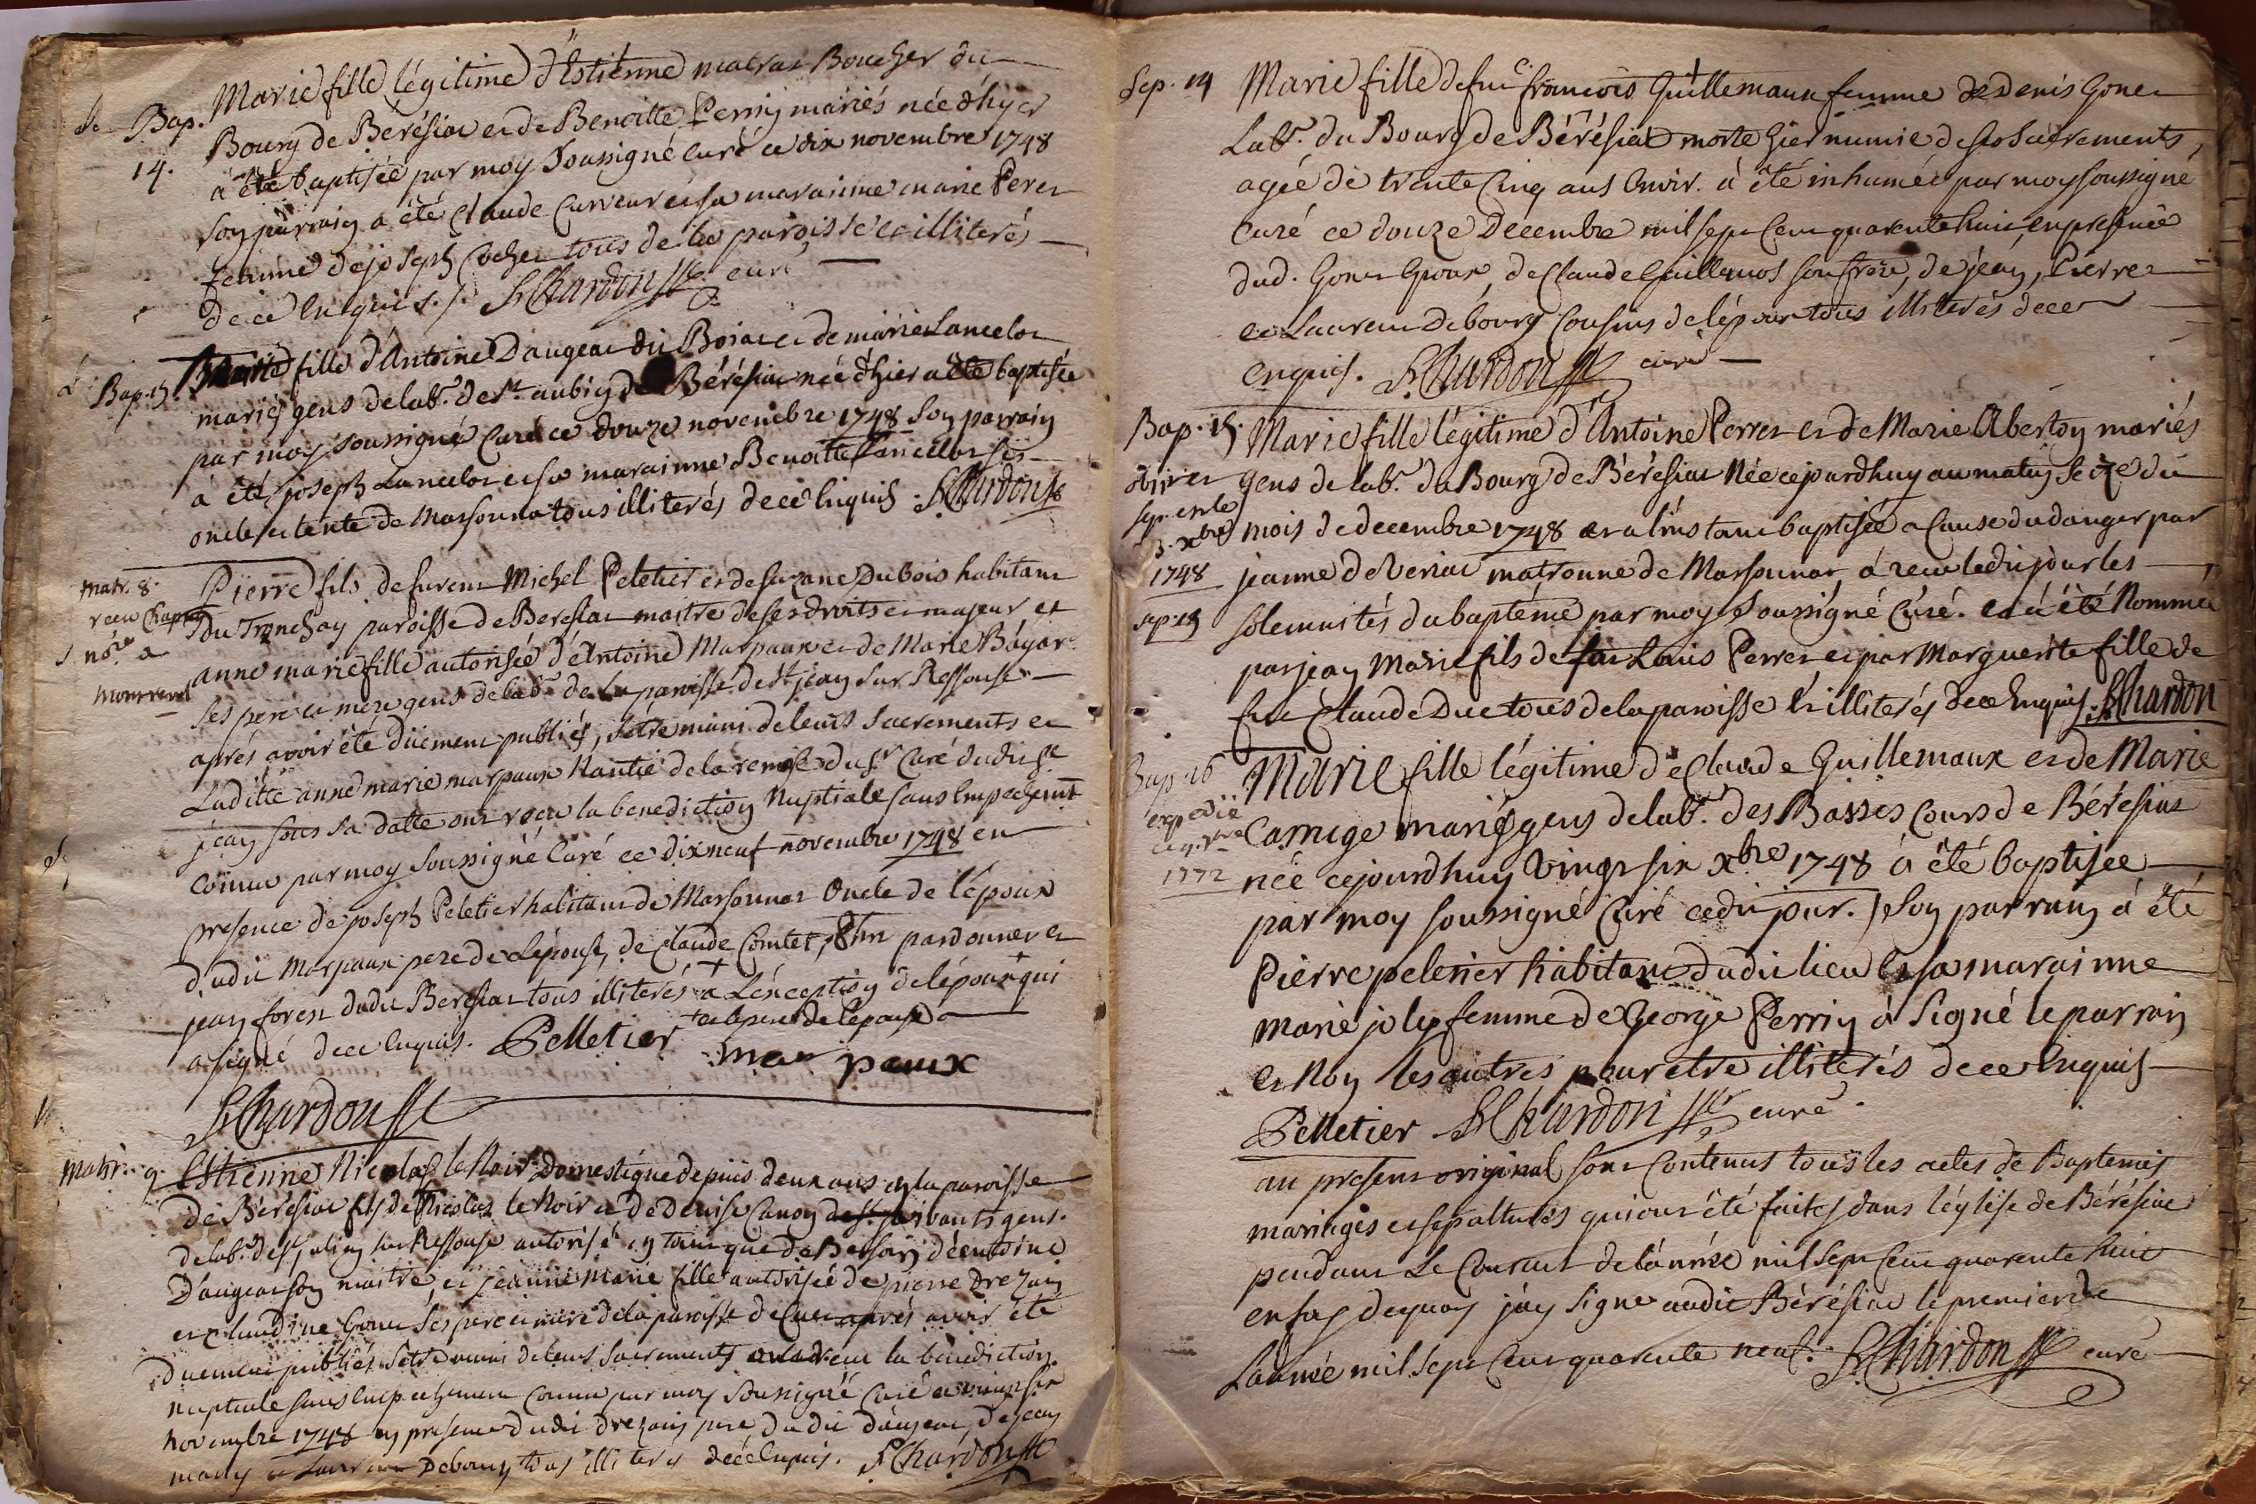 Bap. 14. Marie fille légitime d'Estienne matrat Boucher du
Bourg de Berésiat et de Benoitte Perrin mariés née d'hyer
a été baptisée par moy Soussigné curé ce dix novembre 1748
son parrain a été Claude Curveur et sa marainne marie Peret
femme de joseph Cocher tous de la paroisse et illiterés
de ce Enquis ./. StChardon curé
Bap. 15. Marie fille d'Antoine Daugeat du Boiat et de marie Lancelot
mariés gens de labr. de st. aubin de Bérésiat née d'hier a été baptisée
par moy soussigné Curé ce douze novembre 1748 Son parrain
à été joseph Lancelot et sa marainne Benoitte Lancelot ses
oncle et tente de Marsonnat tous illiterés de ce Enquis. StChardon
matr. 8.
receu Chapuy
nore a
montrevel
Pierre fils de furent Michel Peletier et de suzane Dubois habitant
du Tronchay paroisse de Beresiat maitre de ses droits et majeur et
anne marie fille autorisée d'Antoine Marpaux et de Marie Bayar
Ses pere et mere gens de labr. de la paroisse de st jean sur Ressouse
après avoir été düement publiés, s'etre muni de leurs sacrements et
Laditte anne marie marpaux Nantie de la remise du Sr Curé dudit st
jean sous sa datte ont receu la benediction Nuptiale sans Empechemt
Connu par moy Soussigné Curé ce dixneuf novembre 1748 en
presence de joseph Peletier habitant de Marsonnat Oncle de l'époux
dudit Marpaux pere de Lépouse, de Claude Comtet, pardonner et
jean forest dudit Beresiat tous illiterés a L'exception de l'époux + qui
+ et le pere de l'epouse
a signé de ce Enquis. Pelletier mar paux
StChardon
matr. 9. Estienne Nicolas le Noir domestique depuis deux ans en la paroisse
de Bérésiat fils de Nicolas le Noir et de Denise Canon vivants gens
de labr. de st julien sur Ressouse autorisé en tant que de Besoin d'antoine
D'augeat son maitre, et jeanne marie fille autorisée de pierre Drezain
et Claudine Gonet ses pere et mere de la paroisse de Cuet après avoir été
Duement publiés s'etre munis de leurs sacrements ont receu la bénédiction
nuptiale sans Empechement Connu par moy Soussigné Curé ce vingt six
novembre 1748 en presence dudit drezain pere du dit daugeat, de jean
et Laurent Debourg tous illiterés de ce Enquis. StChardon
Sep. 14 Marie fille de fut francois Guillemaux femme de Denis Gonet
Labr. du Bourg de Bérésiat morte hier munie de ses sacrements,
agée de trente Cinq ans Envir. à été inhumée par moy soussigné
Curé ce douze Decembre mil sept cent quarente huit, en presence
dud. Gonet Epoux, de Claude Guillemos son frere, de jean, Pierre
et Laurent Debourg Cousins de l'époux tous illiterés de ce
enquis. StChardon curé
Bap. 15.
Sep. 15
1748
Marie fille légitime d'Antoine Perret et de Marie Aberton mariés
gens de labr. du Bourg de Bérésiat Née cejourd'huy au matin Seize du
mois de decembre 1748 et a l'instant baptisée a Cause du danger par
jeanne de Veriat matronne de Marsonnat, à receu ledit jour les
solemnités du baptême par moy Soussigné Curé. et a été Nommée
par jean Marie fils de feu Louis Perret et par Marguerite fille de
feu Claude Duc tous de la paroisse Et illiterés de ce Enquis. StChardon
Bap. 16
expedié
1772
Marie fille légitime de Claude Guillemaux et de Marie
Carruge mariés gens de labr. des Basses Cours de Bérésiat
née cejourdhuy vingt six xbre 1748 à été baptisée
par moy soussigné Curé cedit jour. Son parrain à été
Pierre peletier habitant dudit lieu Et sa marainne
marie joly femme de George Perrin à Signé le parrain
et Non les autres pour etre illiterés de ce Enquis
Pelletier StChardon curé.
au present original sont Contenus tous les actes de Baptemes,
mariages et sepultures qui ont été faites dans l'église de Bérésiat
pendant Le Courant de l'année mil sept Cent quarente huit
en foy dequoy j'ay Signé audit Bérésiat le premier de
L'année mil sept Cent quarente neuf. StChardon curé